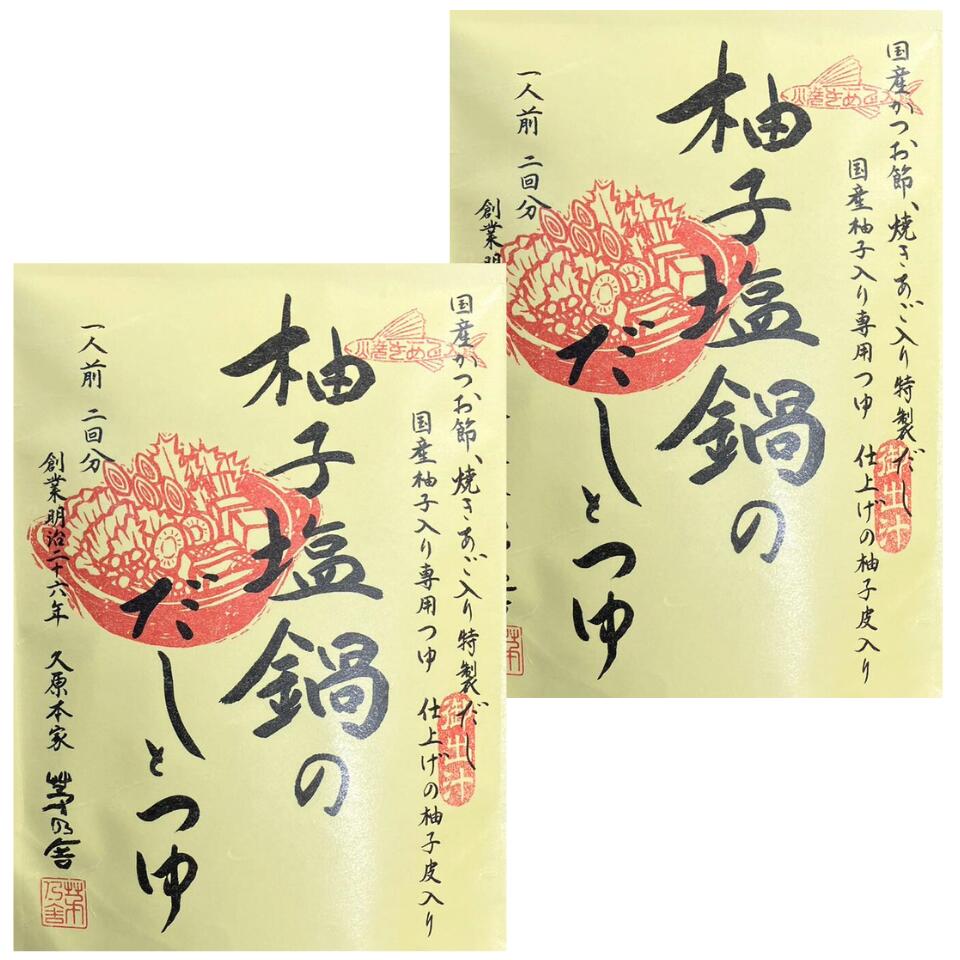 国産かつお節、焼きあご入り特製だし
国産柚子入り専用つゆ 仕上げの柚子皮入り
御出汁
柚子塩鍋の
だしとつゆ
一人前 二回分
創業明治二十六年 久原本家 茅乃舎
茅乃舎
国産かつお節、焼きあご入り特製だし
国産柚子入り専用つゆ 仕上げの柚子皮入り
御出汁
柚子塩鍋の
だしとつゆ
一人前 二回分
創業明